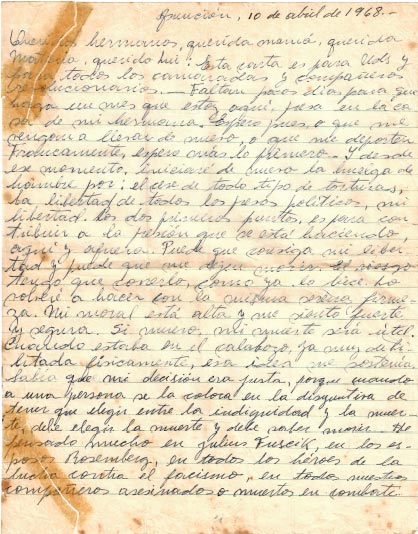 Asunción, 10 de abril de 1968.-
Queridos hermanos, querida mamá, querida
querido Luis: Esta carta es para Uds y
para todos los camaradas y compañeros
revolucionarios. — Faltan pocos días para que
haga un mes que estoy aquí, presa en la ca-
sa de mi hermana. Espero pues, o que me
vengan a llevar de nuevo, o que me deporten.
Francamente, espero más lo primero. Y desde
ese momento, iniciaré de nuevo la huelga de
hambre por: el cese de todo tipo de torturas,
la libertad de todos los presos políticos, mi
libertad. Los dos primeros puntos, es para con-
tribuir a la presión que se está haciendo
aquí y afuera. Puede que consiga mi liber-
tad y puede que me dejen morir. El riesgo
tengo que correrlo, como ya lo hice, lo
volveré a hacer con la misma serena firme-
za. Mi moral está alta y me siento fuerte
y segura. Si muero, mi muerte será útil.
Cuando estaba en el calabozo, ya muy debi-
litada físicamente, esa idea me sostenía.
Sabía que mi decisión era justa, porque cuando
a una persona se la coloca en la disyuntiva de
tener que elegir entre la indignidad y la muer-
te, debe elegir la muerte y debe saber morir. He
pensado mucho en Julius Fuscik, en los es-
posos Rosemberg, en todos los héroes de la
lucha contra el facismo, en todos nuestros
compañeros asesinados o muertos en combate.